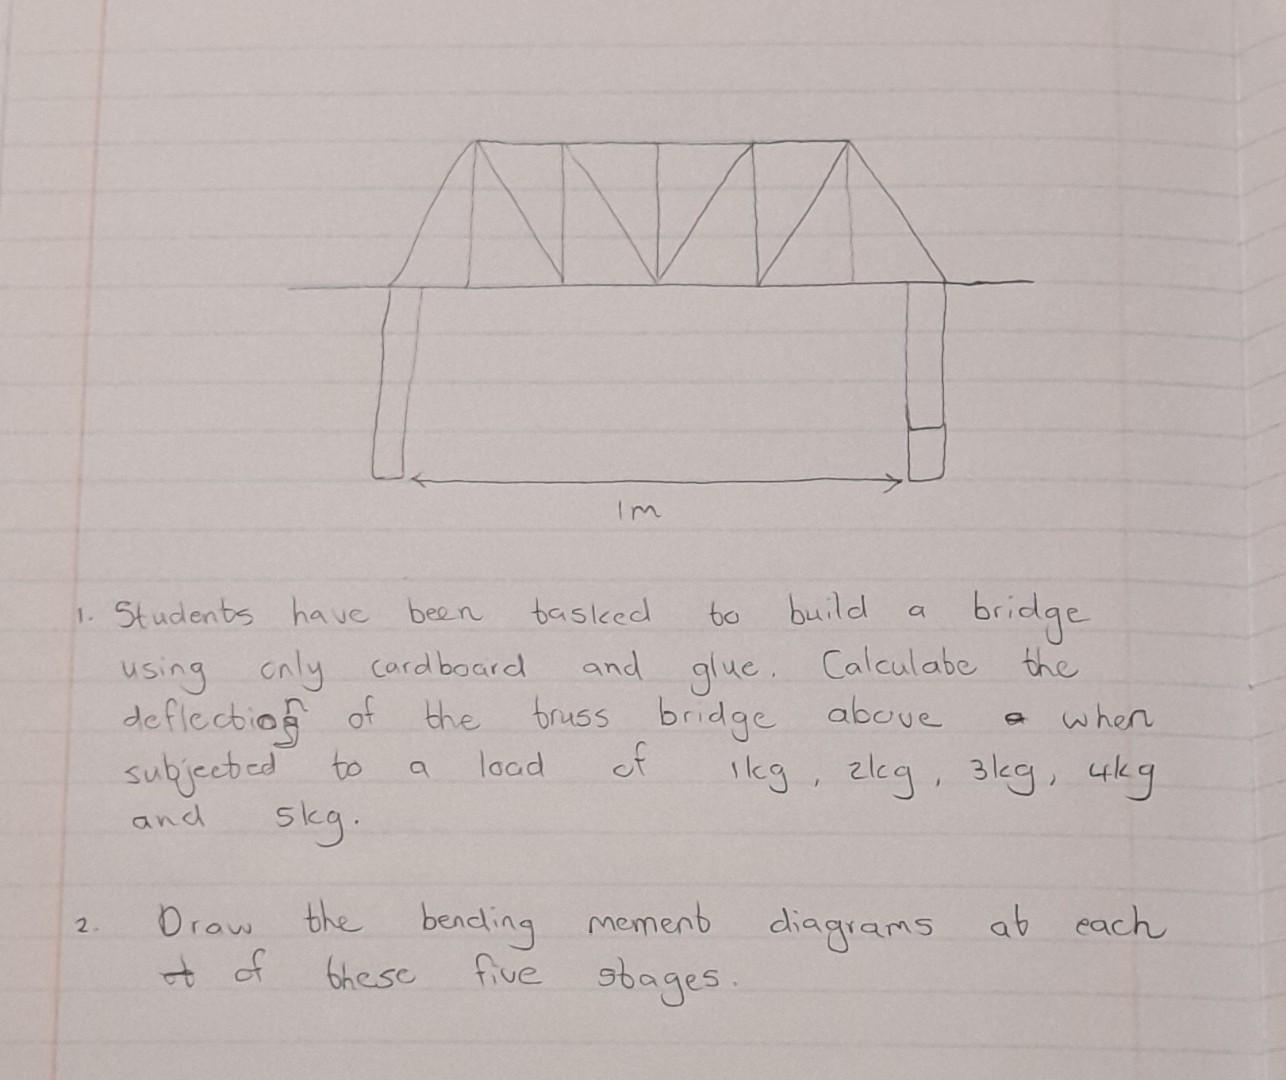 1m
1. Students have been tasked to build a bridge
using only cardboard and glue. Calculate the
deflection of the truss bridge above when
subjected to a load of 1kg, 2kg, 3kg, 4kg
and 5kg.
2. Draw the bending mement diagrams at each
of these five stages.